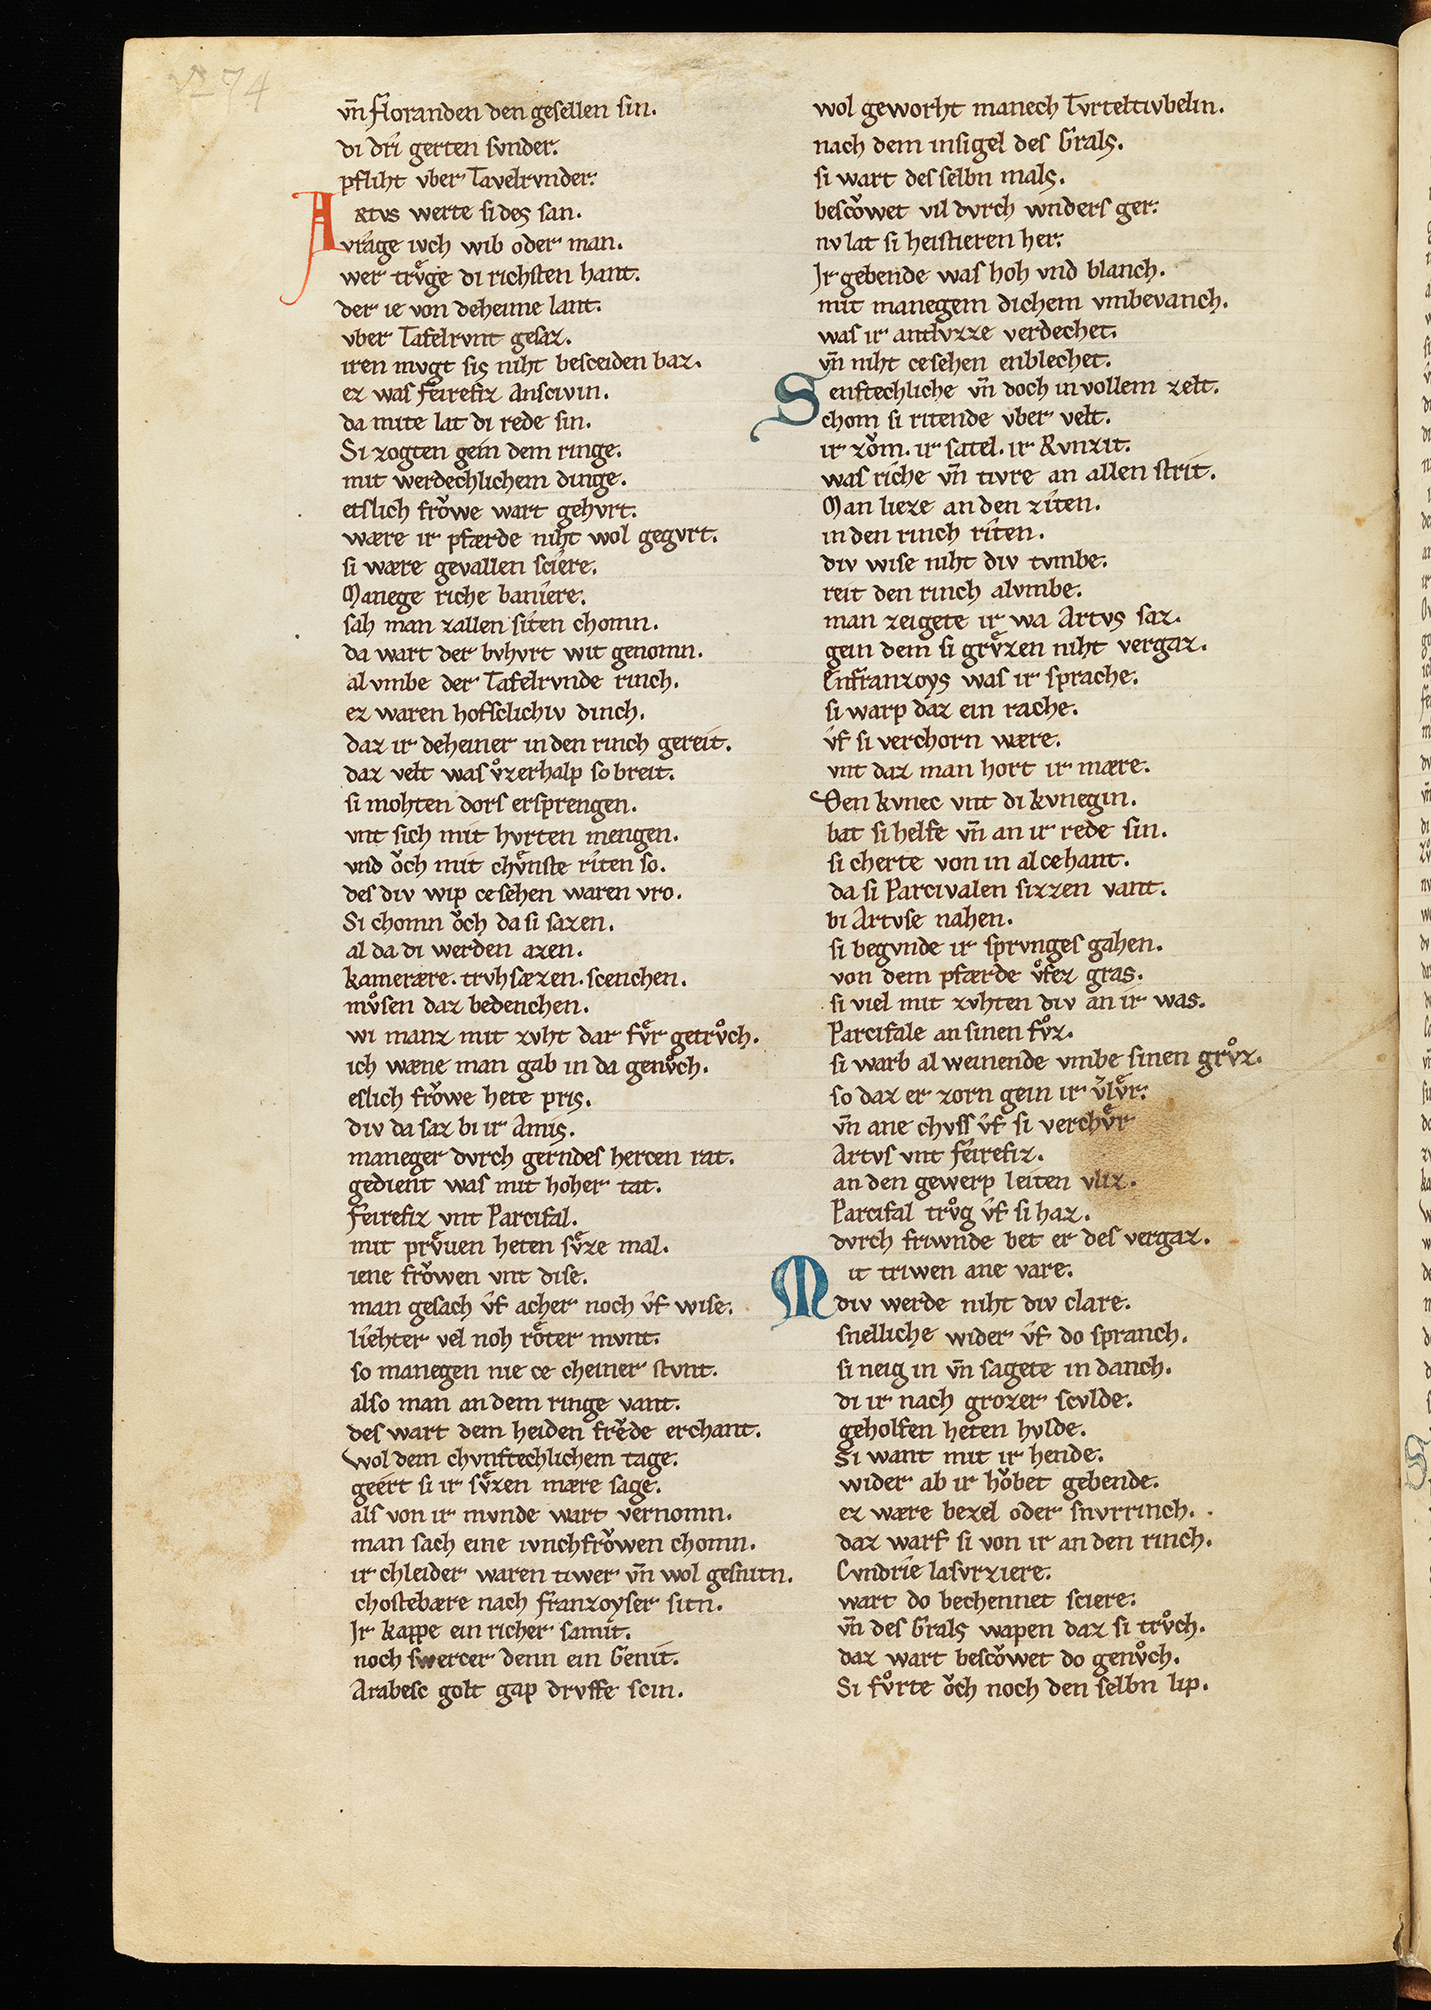 vn̄ Floranden den gesellen sin.
di dri gerten svnder.
pfliht vber Tavelrvnder.
Artvs werte si dez san.
vrage ivch wib oder man.
wer trvͤge di richsten hant.
der ie von deheime lant.
vber Tafelrvnt gesaz.
iren mvgt siz niht besceiden baz.
ez was Feirefiz Anscivin.
da mite lat di rede sin.
Si zogten gein dem ringe.
mit werdechlichem dinge.
etslich frǒwe wart gehvrt.
wære ir pfærde niht wol gegvrt.
si wære gevallen sciere.
Manege riche baniere.
sah man zallen siten chomn.
da wart der bvhvrt wit genomn.
al vmbe der Tafelrvnde rinch.
ez waren hofsclichiv dinch.
daz ir deheiner in den rinch gereit.
daz velt was vͦzerhalp so breit.
si mohten dors ersprengen.
vnt sich mit hvrten mengen.
vnd ǒch mit chvͤnste riten so.
des div wip ce sehen waren vro.
Si chomn ǒch da si sazen.
al da di werden azen.
kamerære. trvhsæzen. scenchen.
mvͦsen daz bedenchen.
wi manz mit zvht dar fvͤr getrvͦch.
ich wæne man gab in da genvͦch.
eslich frǒwe hete pris.
div da saz bi ir Amis.
maneger dvrch gerndes hercen rat.
gedient was mit hoher tat.
Feirefiz vnt Parcifal.
mit prvͤuen heten svͤze mal.
iene frǒwen vnt dise.
man gesach vf acher noch vf wise.
liehter vel noh roͤter mvnt.
so manegen nie ce cheiner stvnt.
also man an dem ringe vant.
des wart dem heiden frevde erchant.
wol dem chvnftechlichem tage.
geert si ir svͤzen mære sage.
als von ir mvnde wart vernomn.
man sach eine ivnchfrǒwen chomn.
ir chleider waren tiwer vn̄ wol gesnitn.
chostebære nach franzoyser sitn.
Ir kappe ein richer samit.
noch swercer denn ein Genit.
Arabesc golt gap drvffe scin.
wol geworht manech Tvrteltivbelin.
nach dem insigel des Grals.
si wart des selbn mals.
bescǒwet vil dvrch wnders ger.
nv lat si heistieren her.
Ir gebende was hoh vnd blanch.
mit manegem dichem vmbevanch.
was ir antlvzze verdechet.
vn̄ niht ce sehen enblechet.
Senftechliche vn̄ doch in vollem zelt.
chom si ritende vber velt.
ir zǒm. ir satel. ir Rvnzit.
was riche vn̄ tivre an allen strit.
Man lieze an den ziten.
in den rinch riten.
div wise niht div tvmbe.
reit den rinch alvmbe.
man zeigete ir wa Artvs saz.
gein dem si grvͤzen niht vergaz.
Enfranzoys was ir sprache.
si warp daz ein rache.
vf si verchorn wære.
vnt daz man hort ir mære.
Den kvnec vnt di kvnegin.
bat si helfe vn̄ an ir rede sin.
si cherte von in al cehant.
da si Parcivalen sizzen vant.
bi Artvse nahen.
si begvnde ir sprvnges gahen.
von dem pfærde vͦfez gras.
si viel mit zvhten div an ir was.
Parcifale an sinen fvͦz.
si warb al weinende vmbe sinen grvͦz.
so daz er zorn gein ir vͤlvͤr.
vn̄ ane chvss vf si verchvͤr
Artvs vnt Feirefiz.
an den gewerp leiten vliz.
Parcifal trvͦg vf si haz.
dvrch friwnde bet er des vergaz.
Mit triwen ane vare.
div werde niht div clare.
snelliche wider vf do spranch.
si neig in vn̄ sagete in danch.
di ir nach grozer scvlde.
geholfen heten hvlde.
Si want mit ir hende.
wider ab ir hǒbet gebende.
ez wære bezel oder snvrrinch.
daz warf si von ir an den rinch.
Cvndrie lasvrziere.
wart do bechennet sciere.
vn̄ des Grals wapen daz si trvͦch.
daz wart bescǒwet do genvͦch.
Si fvͦrte ǒch noch den selbn lip.